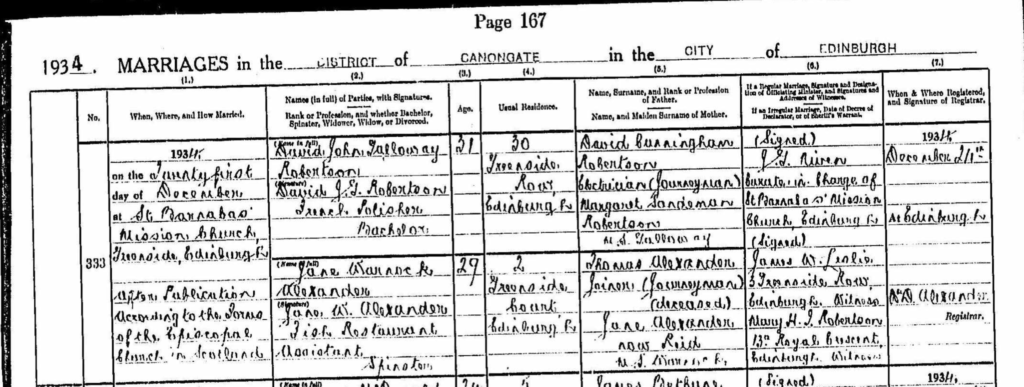 Page 167
1934. MARRIAGES in the DISTRICT of CANONGATE in the CITY of EDINBURGH
(1.) (2.) (3.) (4.) (5.) (6.) (7.)
No.
When, Where, and How Married.
Names (in full) of Parties, with Signatures.
Rank or Profession, and whether Bachelor, Spinster, Widower, Widow, or Divorced.
Age.
Usual Residence.
Name, Surname, and Rank or Profession of Father.
Name, and Maiden Surname of Mother.
If a Regular Marriage, Signature and Designation of Officiating Minister, and Signatures and Addresses of Witnesses.
If an Irregular Marriage, Date of Decree of Declarator, or of Sheriff's Warrant.
When & Where Registered, and Signature of Registrar.
333
1934,
on the Twenty first
day of December
at St Barnabas'
Mission Church,
Greenside, Edinburgh
After Publication
According to the Forms
of the Episcopal
Church in Scotland
(Name in full)
David John Galloway
Robertson
(Signature)
David J. G. Robertson
French Polisher
Bachelor
31
30
Greenside
Row
Edinburgh
David Cunningham
Robertson
Electrician (Journeyman)
Margaret Sandeman
Robertson
M.S. Galloway
(Signed)
Curate in Charge of
St Barnabas' Mission
Church, Edinburgh
(Signed)
James W. Leslie
3 Greenside Row,
Edinburgh. Witness
Mary H. J. Robertson
13A Royal Crescent,
Edinburgh. Witness
1934,
December 24th
At Edinburgh
Alexander
Registrar.
(Name in full)
Jane Warnock
Alexander
(Signature)
Jane W. Alexander
Fish Restaurant
Assistant
Spinster
29
2
Greenside
Court
Edinburgh
Thomas Alexander
Joiner (Journeyman)
(deceased)
Jane Alexander
now Reid
M.S. Warnock
James Bethune
(Signed)
1934,